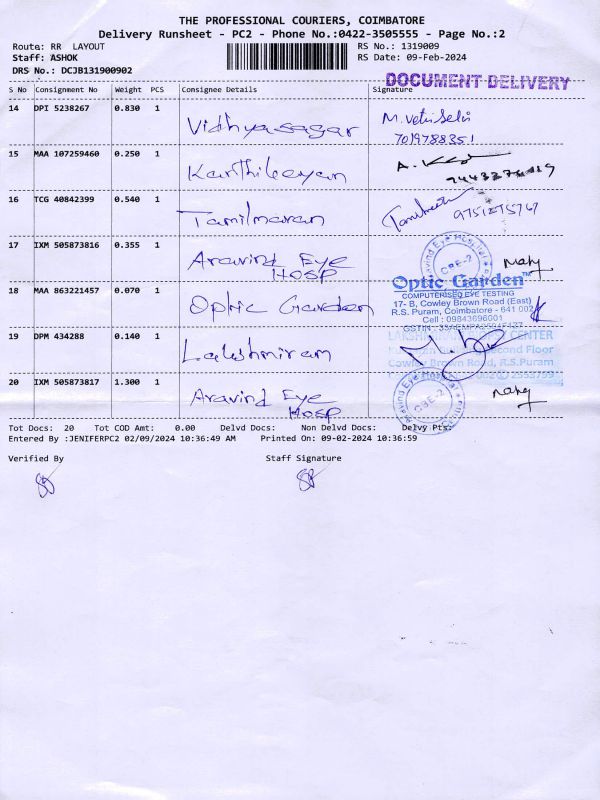 THE PROFESSIONAL COURIERS, COIMBATORE
Delivery Runsheet - PC2 - Phone No.:0422-3505555 - Page No.:2
Route: RR LAYOUT
RS No.: 1319009
Staff: ASHOK
RS Date: 09-Feb-2024
DRS No.: DCJB131900902
DOCUMENT DELIVERY
S No Consignment No Weight PCS Consignee Details Signature
14 DPI 5238267 0.830 1 Vidhyasagar
7019788351
15 MAA 107259460 0.250 1 Karthikeeyan
16 TCG 40842399 0.540 1 Tamilmaran
17 IXM 505873816 0.355 1 Aravind Eye
Hosp
CBE-2
18 MAA 863221457 0.070 1 Optic Garden
Optic Garden™
COMPUTERISED EYE TESTING
17- B, Cowley Brown Road (East)
R.S. Puram, Coimbatore - 641 002
Cell : 09843696001
19 DPM 434288 0.140 1 Lakshmiram
CENTER
Second Floor
Cowley Brown Road, R.S.Puram
20 IXM 505873817 1.300 1 Aravind Eye
Hosp
CBE-2
Tot Docs: 20 Tot COD Amt: 0.00 Delvd Docs: Non Delvd Docs: Delvy Pts:
Entered By :JENIFERPC2 02/09/2024 10:36:49 AM Printed On: 09-02-2024 10:36:59
Verified By Staff Signature